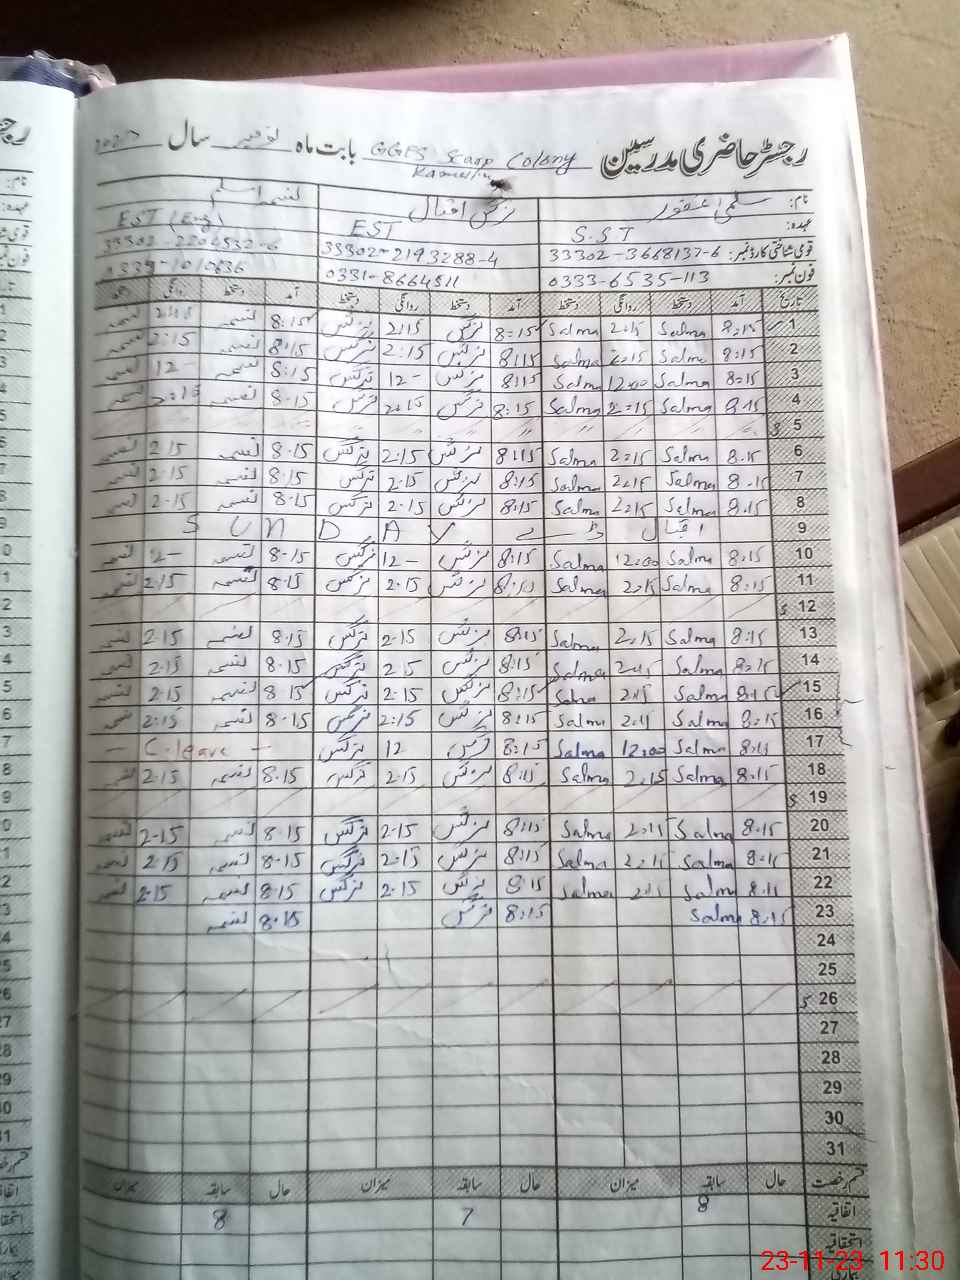 رجسٹر حاضری مدرسین GGES Scarp Colony بابت ماہ نومبر سال
نام: سلمیٰ غفور نرگس اقبال نسیمہ اسلم
عہدہ: S.ST EST EST (Eng)
قومی شناختی کارڈ نمبر: 33302-3668137-6 33302-2193288-4 33302-2204532-6
فون نمبر: 0333-6535-113 0331-8664511
تاریخ آمد دستخط روانگی دستخط آمد دستخط روانگی دستخط آمد دستخط روانگی دستخط
1 8:15 Salma 2:15 Salma 8:15 نرگس 2:15 نرگس 8:15 نسیمہ 2:15 نسیمہ
2 8:15 Salma 2:15 Salma 8:15 نرگس 2:15 نرگس 8:15 نسیمہ 2:15 نسیمہ
3 8:15 Salma 12:00 Salma 8:15 نرگس 12- نرگس 8:15 نسیمہ 12- نسیمہ
4 8:15 Salma 2:15 Salma 8:15 نرگس 2:15 نرگس 8:15 نسیمہ 2:15 نسیمہ
5 S
6 8:15 Salma 2:15 Salma 8:15 نرگس 2:15 نرگس 8:15 نسیمہ 2:15 نسیمہ
7 8:15 Salma 2:15 Salma 8:15 نرگس 2:15 نرگس 8:15 نسیمہ 2:15 نسیمہ
8 8:15 Salma 2:15 Salma 8:15 نرگس 2:15 نرگس 8:15 نسیمہ 2:15 نسیمہ
9 اقبال ڈے SUNDAY
10 8:15 Salma 12:00 Salma 8:15 نرگس 12- نرگس 8:15 نسیمہ 2- نسیمہ
11 8:15 Salma 2:15 Salma 8:15 نرگس 2:15 نرگس 8:15 نسیمہ 2:15 نسیمہ
12 S
13 8:15 Salma 2:15 Salma 8:15 نرگس 2:15 نرگس 8:15 نسیمہ 2:15 نسیمہ
14 8:15 Salma 2:15 Salma 8:15 نرگس 2:15 نرگس 8:15 نسیمہ 2:15 نسیمہ
15 8:15 Salma 2:15 Salma 8:15 نرگس 2:15 نرگس 8:15 نسیمہ 2:15 نسیمہ
16 8:15 Salma 2:15 Salma 8:15 نرگس 2:15 نرگس 8:15 نسیمہ 2:15 نسیمہ
17 8:15 Salma 12:00 Salma 8:15 نرگس 12 نرگس - C.leave -
18 8:15 Salma 2:15 Salma 8:15 نرگس 2:15 نرگس 8:15 نسیمہ 2:15 نسیمہ
19 S
20 8:15 Salma 2:15 Salma 8:15 نرگس 2:15 نرگس 8:15 نسیمہ 2:15 نسیمہ
21 8:15 Salma 2:15 Salma 8:15 نرگس 2:15 نرگس 8:15 نسیمہ 2:15 نسیمہ
22 8:15 Salma 2:15 Salma 8:15 نرگس 2:15 نرگس 8:15 نسیمہ 2:15 نسیمہ
23 8:15 Salma 8:15 نرگس 8:15 نسیمہ
24
25
26 S
27
28
29
30
31
قسم رخصت حال سابقہ میزان حال سابقہ میزان حال سابقہ میزان
اتفاقیہ 8 7 8
استحقاقیہ
23-11-23 11:30